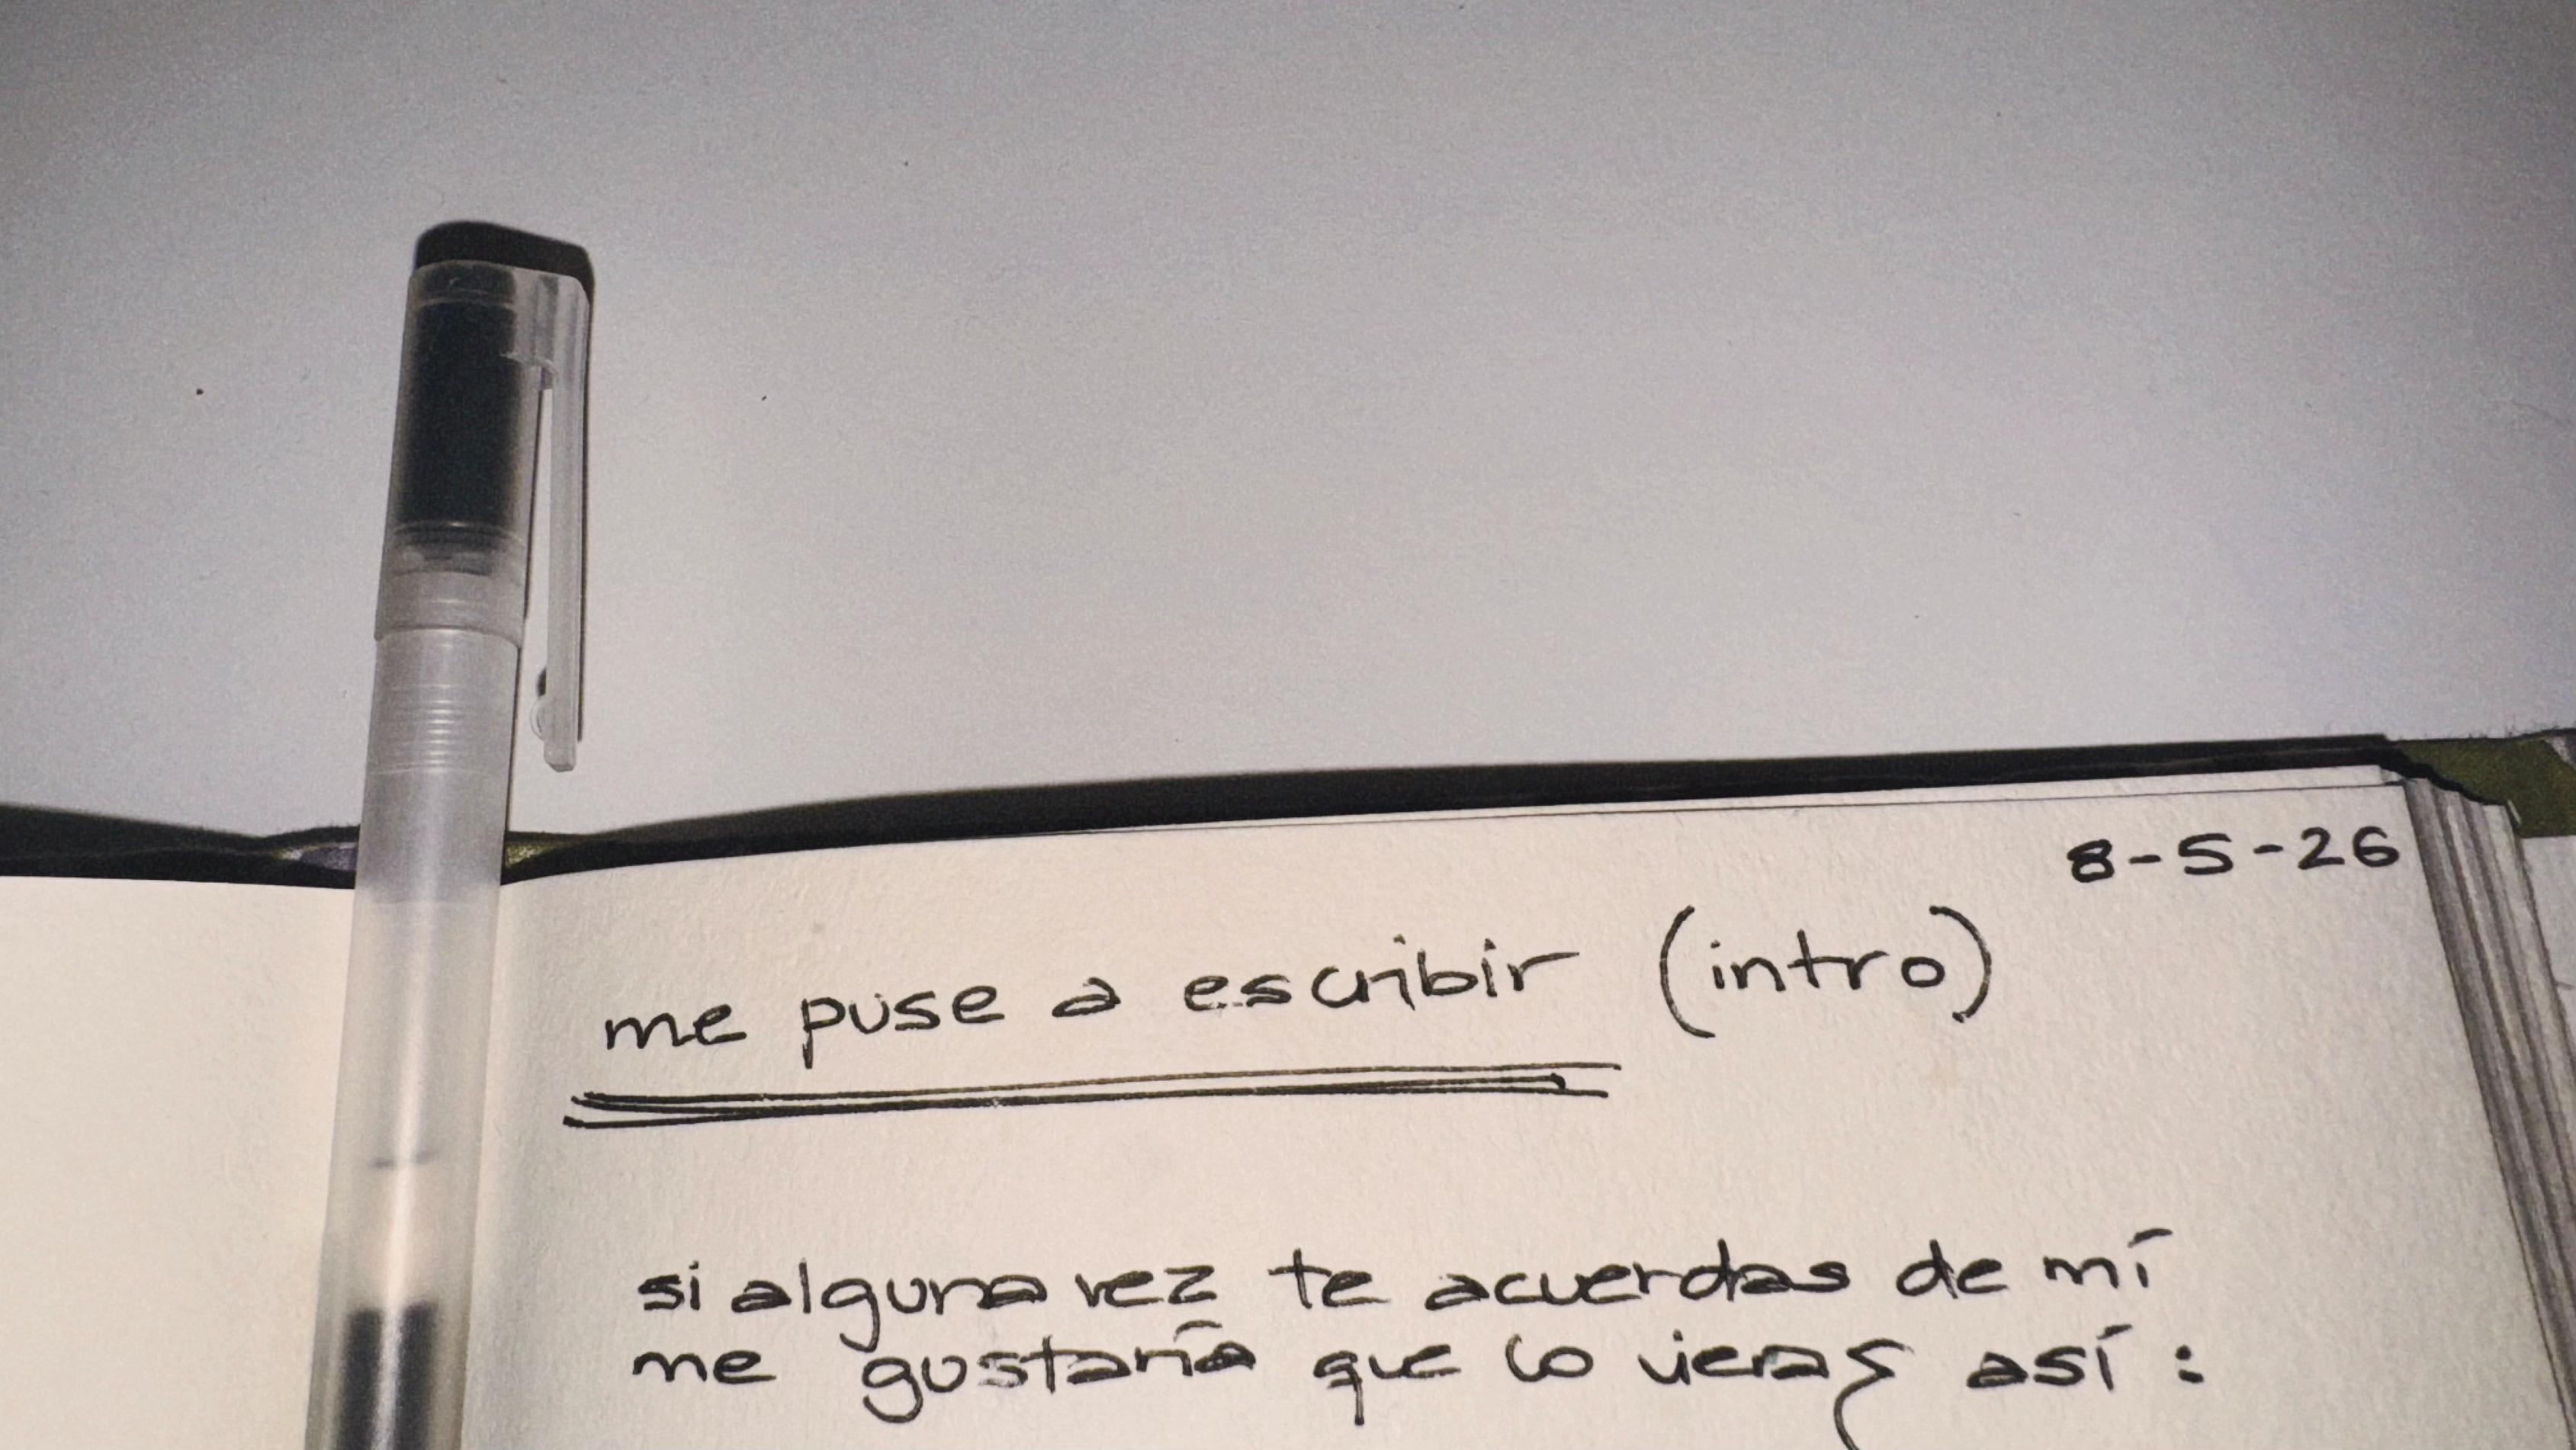 8-5-26
me puse a escribir (intro)
si alguna vez te acuerdas de mí
me gustaría que lo vieras así: